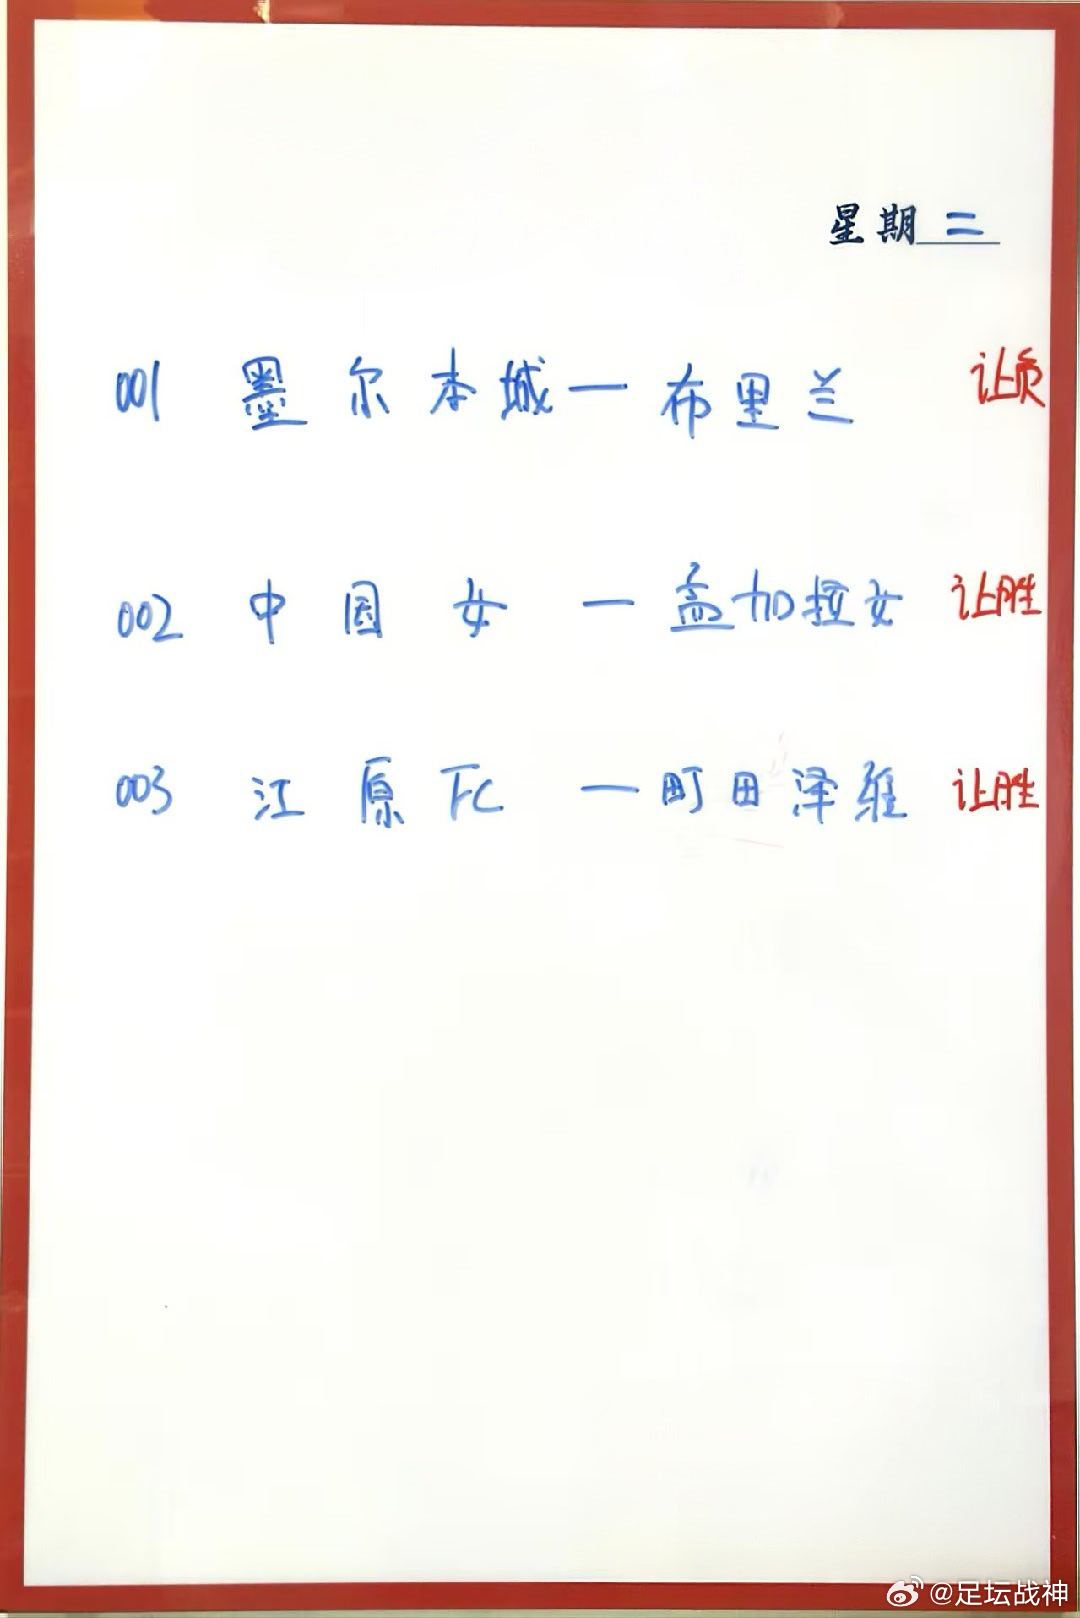 星期二
001 墨尔本城一布里兰 让负
002 中国女 一孟加拉女 让胜
003 江原FC 一町田泽维 让胜
@足坛战神